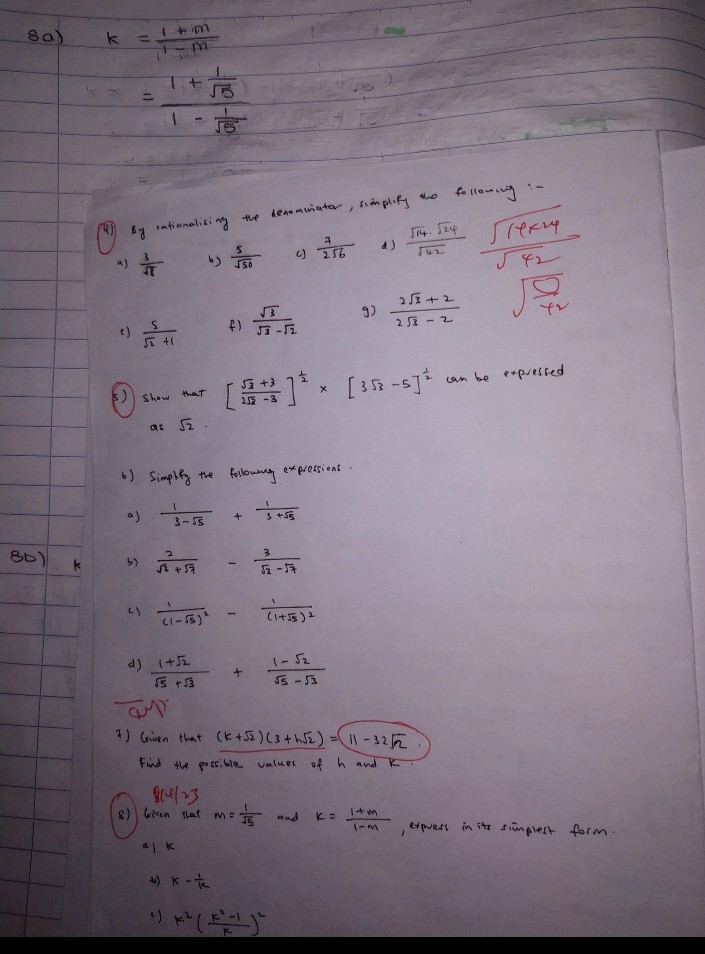 8a) k = (1 + m)/(1 - m)
= (1 + 1/√5)/(1 - 1/√5)
=
4) By rationalising the denominator, simplify the following :-
a) 3/√8 b) 5/√50 c) 7/2√6 d) √14 . √24/√42 √14×24/√42
e) 5/(√2 + 1) f) √3/(√3 - √2) g) (2√3 + 2)/(2√3 - 2)
5) Show that [(√3 + 3)/(2√3 - 3)]^½ × [3√3 - 5]^½ can be expressed
as √2 .
6) Simplify the following expressions .
a) 1/(3 - √5) + 1/(3 + √5)
8b) k
b) 2/(√3 + √7) - 3/(√2 - √7)
c) 1/(1 - √5)² - 1/(1 + √5)²
d) (1 + √2)/(√5 + √3) + (1 - √2)/(√5 - √3)
7) Given that (k + √2)(3 + h√2) = 11 - 32√2 .
Find the possible values of h and k .
8) Given that m = 1/√5 and k = (1 + m)/(1 - m) , express in its simplest form .
a) k
b) k - 1/k
c) k² ((k² - 1)/k)²